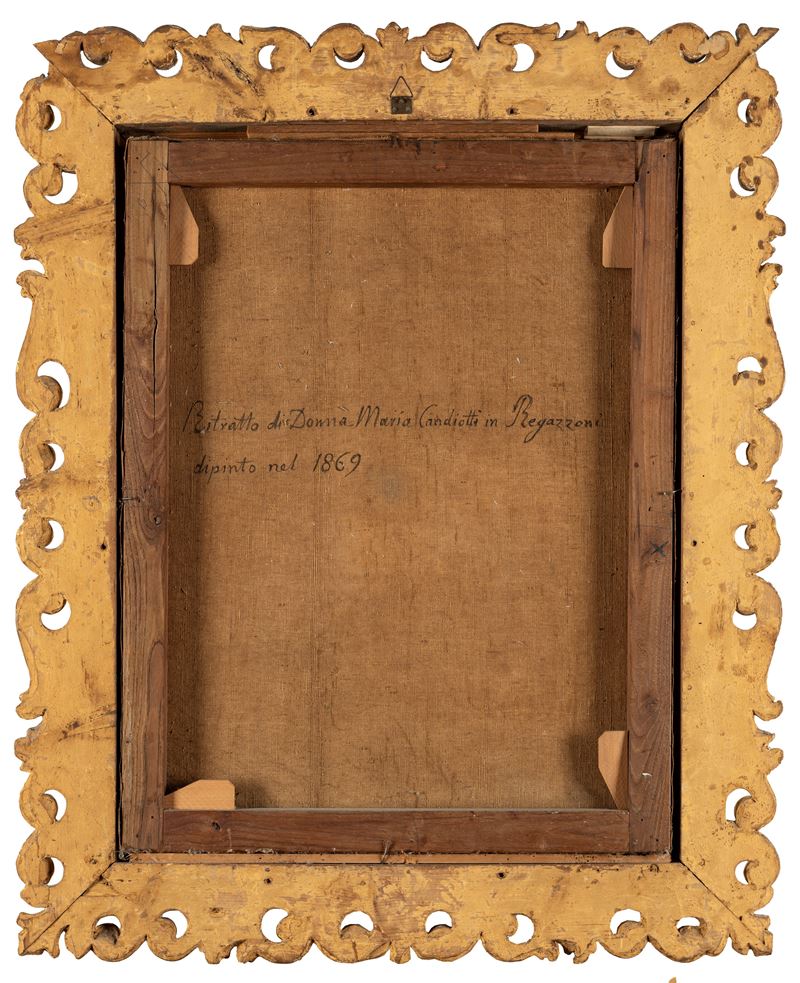 Ritratto di Donna Maria Candiotti in Regazzoni
dipinto nel 1869